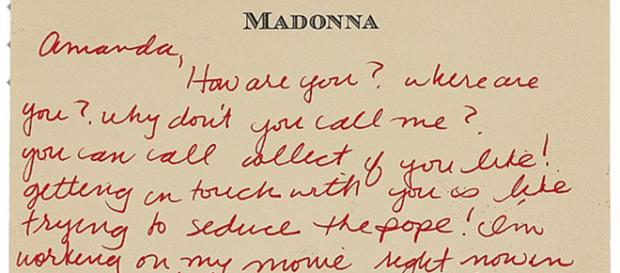 MADONNA
Amanda,
How are you? where are
you? why don't you call me?
you can call collect if you like!
getting in touch with you is like
trying to seduce the pope! I'm
working on my movie right now in